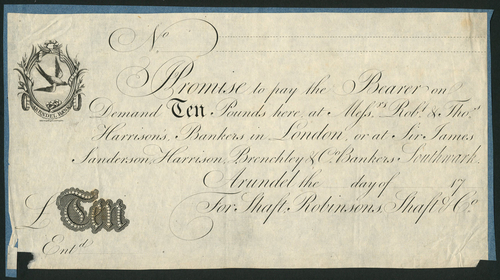 No
I Promise to pay the Bearer on
Demand Ten Pounds here, at Mess.rs Rob.t & Tho.s
Harrison's, Bankers in London, or at Sir James
Sanderson, Harrison, Brenchley & Co. Bankers, Southwark.
ARUNDEL BANK
Arundel the day of 17
£ Ten For Shaft, Robinsons, Shaft & Co.
Ent.d